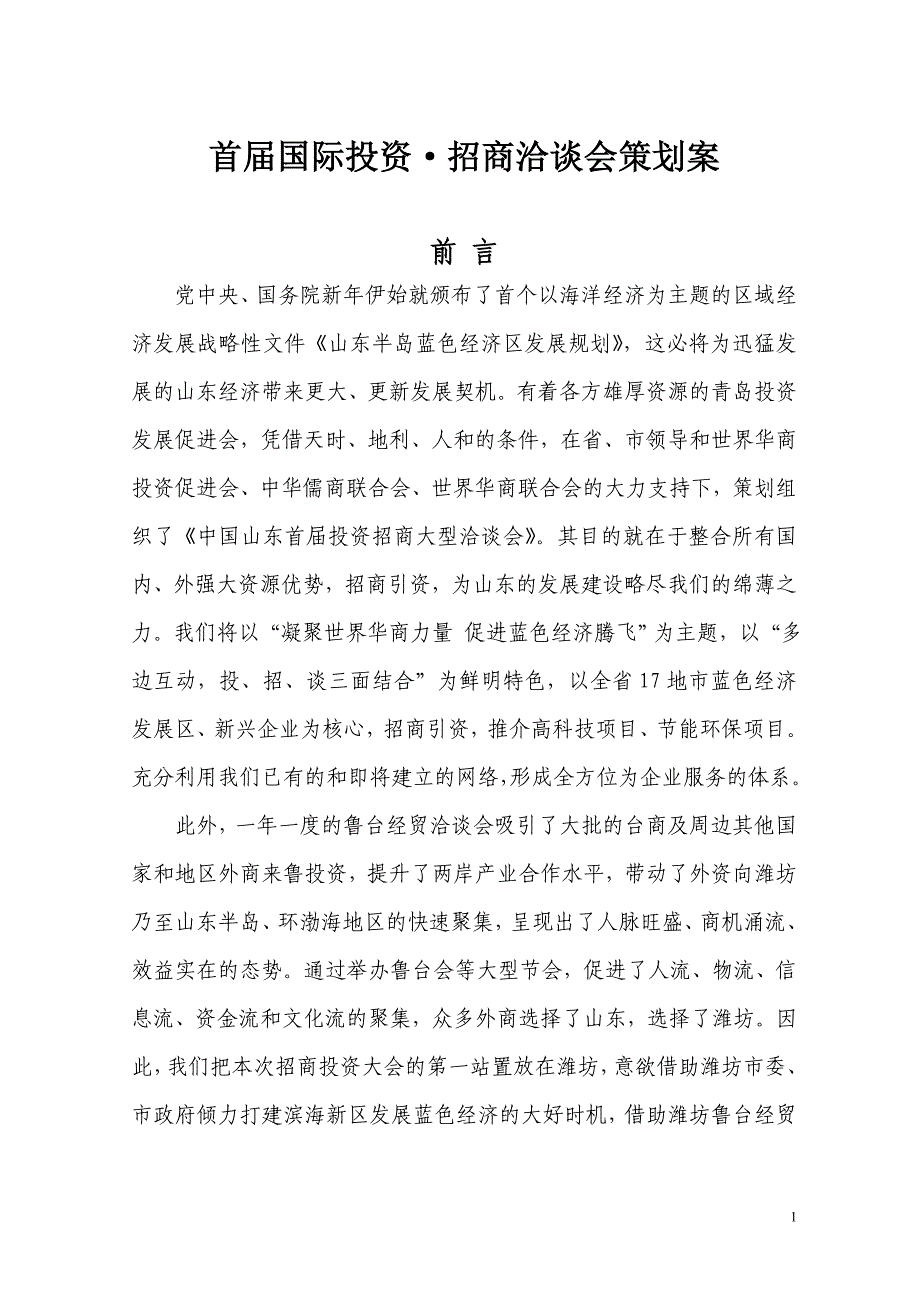 首届国际投资·招商洽谈会策划案
前 言
党中央、国务院新年伊始就颁布了首个以海洋经济为主题的区域经
济发展战略性文件《山东半岛蓝色经济区发展规划》，这必将为迅猛发
展的山东经济带来更大、更新发展契机。有着各方雄厚资源的青岛投资
发展促进会，凭借天时、地利、人和的条件，在省、市领导和世界华商
投资促进会、中华儒商联合会、世界华商联合会的大力支持下，策划组
织了《中国山东首届投资招商大型洽谈会》。其目的就在于整合所有国
内、外强大资源优势，招商引资，为山东的发展建设略尽我们的绵薄之
力。我们将以“凝聚世界华商力量 促进蓝色经济腾飞”为主题，以“多
边互动，投、招、谈三面结合”为鲜明特色，以全省 17 地市蓝色经济
发展区、新兴企业为核心，招商引资，推介高科技项目、节能环保项目。
充分利用我们已有的和即将建立的网络，形成全方位为企业服务的体系。
此外，一年一度的鲁台经贸洽谈会吸引了大批的台商及周边其他国
家和地区外商来鲁投资，提升了两岸产业合作水平，带动了外资向潍坊
乃至山东半岛、环渤海地区的快速聚集，呈现出了人脉旺盛、商机涌流、
效益实在的态势。通过举办鲁台会等大型节会，促进了人流、物流、信
息流、资金流和文化流的聚集，众多外商选择了山东，选择了潍坊。因
此，我们把本次招商投资大会的第一站置放在潍坊，意欲借助潍坊市委、
市政府倾力打建滨海新区发展蓝色经济的大好时机，借助潍坊鲁台经贸
1